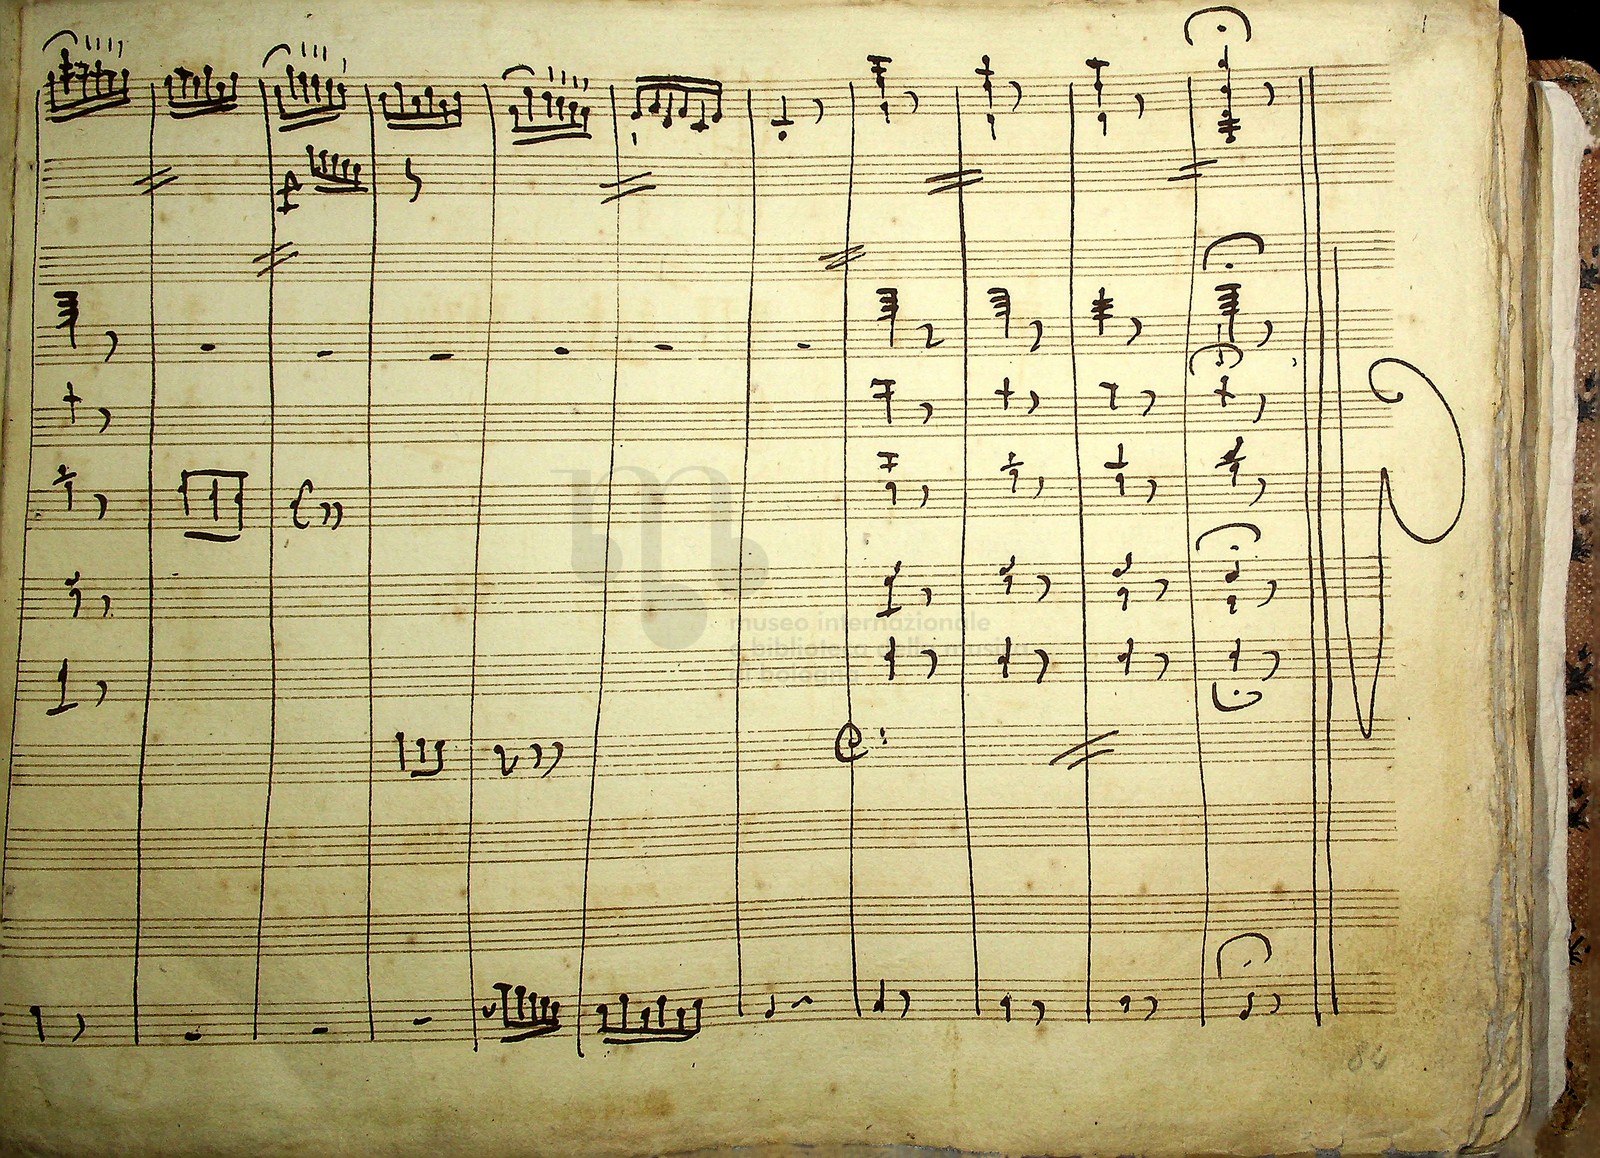 museo internazionale
e biblioteca della musica
di bologna
84